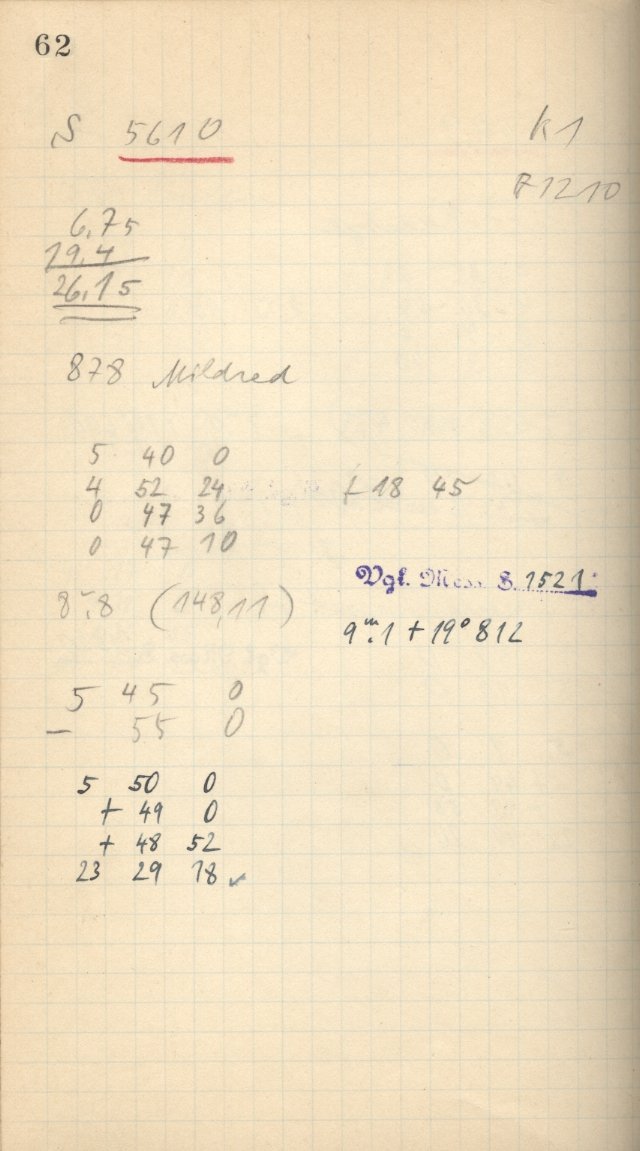 62
S 5610 K1
F 1210
6,75
19,4
26,15
878 Mildred
5 40 0
4 52 24 + 18 45
0 47 36
0 47 10
Vgl. Mess. S. 1521
8ᵐ.8 (148,11)
9ᵐ.1 + 19° 812
5 45 0
– 55 0
5 50 0
+ 49 0
+ 48 52
23 29 18 ✓